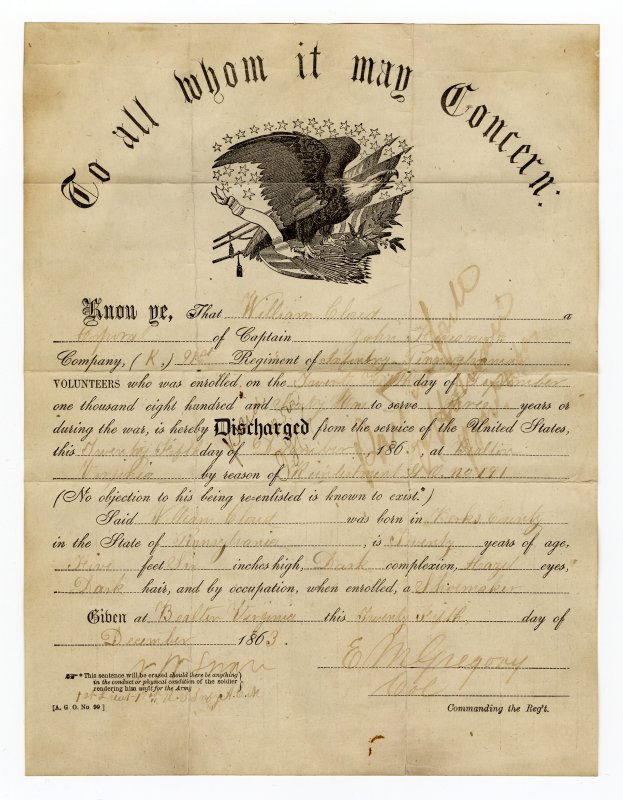 To all whom it may Concern:
Know ye, That William Cloud a
of Captain John
Company, (K,) Regiment of Infantry Pennsylvania
VOLUNTEERS who was enrolled on the day of September
one thousand eight hundred and to serve Three years or
during the war, is hereby Discharged from the service of the United States,
this Twenty Fifth day of December, 186 , at Bealton
Virginia by reason of Reenlistment G.O. No 191
(No objection to his being re-enlisted is known to exist.*)
Said William Cloud was born in Berks County
in the State of Pennsylvania, is Twenty years of age,
Five feet Six inches high, Dark complexion, Hazel eyes,
Dark hair, and by occupation, when enrolled, a Shoemaker
Given at Bealton Virginia this Twenty fifth day of
December 1863.
E M Gregory
Col
* This sentence will be erased should there be anything
in the conduct or physical condition of the soldier
rendering him unfit for the Army
1st Lieut
[A. G. O. No 99] Commanding the Reg't.